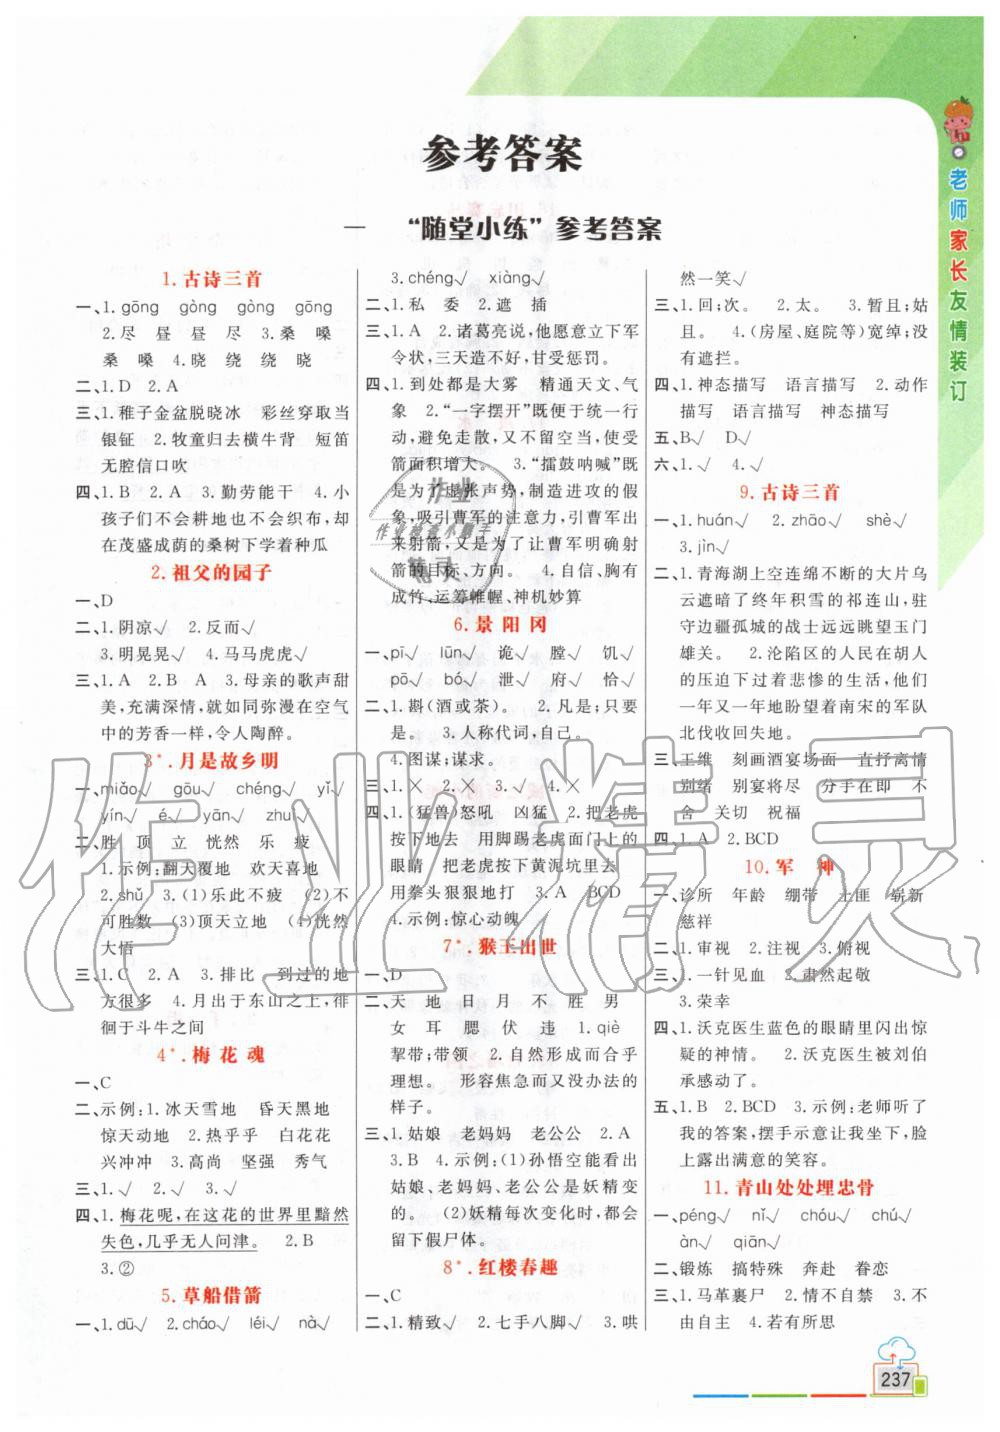 参考答案
一 “随堂小练”参考答案
老师家长友情装订
1.古诗三首
一、1. gōng gòng gòng gōng
2.尽 昼 昼 尽 3.桑 嗓
桑 嗓 4.晓 绕 绕 晓
二、1.D 2.A
三、1.稚子金盆脱晓冰 彩丝穿取当
银钲 2.牧童归去横牛背 短笛
无腔信口吹
四、1.B 2.A 3.勤劳能干 4.小
孩子们不会耕地也不会织布,却
在茂盛成荫的桑树下学着种瓜
2.祖父的园子
一、D
二、1.阴凉√ 2.反而√
3.明晃晃√ 4.马马虎虎√
三、1.A 2.B 3.母亲的歌声甜
美,充满深情,就如同弥漫在空气
中的芳香一样,令人陶醉。
3*.月是故乡明
一、miǎo√ gōu√ chéng√ yǐ√
yín√ é√ yān√ zhu√
二、胜 顶 立 恍然 乐 疲
1.示例:翻天覆地 欢天喜地
2.shǔ 3.(1)乐此不疲 (2)不
可胜数 (3)顶天立地 (4)恍然
大悟
三、1.C 2.A 3.排比 到过的地
方很多 4.月出于东山之上,徘
徊于斗牛之间
4*.梅花魂
一、C
二、示例:1.冰天雪地 昏天黑地
惊天动地 2.热乎乎 白花花
兴冲冲 3.高尚 坚强 秀气
三、1.√ 2.√ 3.√
四、1.梅花呢,在这花的世界里黯然
失色,几乎无人问津。 2.B
3.②
5.草船借箭
一、1.dū√ 2.cháo√ léi√ nà√
3.chéng√ xiàng√
二、1.私 委 2.遮 插
三、1.A 2.诸葛亮说,他愿意立下军
令状,三天造不好,甘受惩罚。
四、1.到处都是大雾 精通天文、气
象 2.“一字摆开”既便于统一行
动,避免走散,又不留空当,使受
箭面积增大。 3.“擂鼓呐喊”既
是为了虚张声势,制造进攻的假
象,吸引曹军的注意力,引曹军出
来射箭,又是为了让曹军明确射
箭的目标、方向。 4.自信、胸有
成竹、运筹帷幄、神机妙算
6.景阳冈
一、pī√ lūn√ 诡√ 膛√ 饥√
pō√ bó√ 泄√ 府√ 恰√
二、1.斟(酒或茶)。 2.凡是;只要
是。 3.人称代词,自己。
4.图谋;谋求。
三、1.× 2.× 3.√ 4.×
四、1.(猛兽)怒吼 凶猛 2.把老虎
按下地去 用脚踢老虎面门上的
眼睛 把老虎按下黄泥坑里去
用拳头狠狠地打 3.A BCD
4.示例:惊心动魄
7*.猴王出世
一、D
二、天 地 日 月 不 胜 男
女 耳 腮 伏 违 1.qiè
挈带;带领 2.自然形成而合乎
理想。 形容焦急而又没办法的
样子。
三、1.姑娘 老妈妈 老公公 2.A
3.B 4.示例:(1)孙悟空能看出
姑娘、老妈妈、老公公是妖精变
的。 (2)妖精每次变化时,都会
留下假尸体。
8*.红楼春趣
一、C
二、1.精致√ 2.七手八脚√ 3.哄
然一笑√
三、1.回;次。 2.太。 3.暂且;姑
且。 4.(房屋、庭院等)宽绰;没
有遮拦。
四、1.神态描写 语言描写 2.动作
描写 语言描写 神态描写
五、B√ D√
六、1.√ 4.√
9.古诗三首
一、1.huán√ 2.zhāo√ shè√
3.jìn√
二、1.青海湖上空连绵不断的大片乌
云遮暗了终年积雪的祁连山,驻
守边疆孤城的战士远远眺望玉门
雄关。 2.沦陷区的人民在胡人
的压迫下过着悲惨的生活,他们
一年又一年地盼望南宋的军队
北伐收回失地。
三、王维 刻画酒宴场面 直抒离情
别绪 别宴将尽 分手在即 不
舍 关切 祝福
四、1.A 2.BCD
10.军神
一、诊所 年龄 绷带 土匪 崭新
慈祥
二、1.审视 2.注视 3.俯视
三、1.一针见血 2.肃然起敬
3.荣幸
四、1.沃克医生蓝色的眼睛里闪出惊
疑的神情。 2.沃克医生被刘伯
承感动了。
五、1.B 2.BCD 3.示例:老师听了
我的答案,摆手示意让我坐下,脸
上露出满意的笑容。
11.青山处处埋忠骨
一、péng√ nǐ√ chóu√ chú√
àn√ qiān√
二、锻炼 搞特殊 奔赴 眷恋
三、1.马革裹尸 2.情不自禁 3.不
由自主 4.若有所思
237
作业
作业检查小助手
精灵
作业精灵